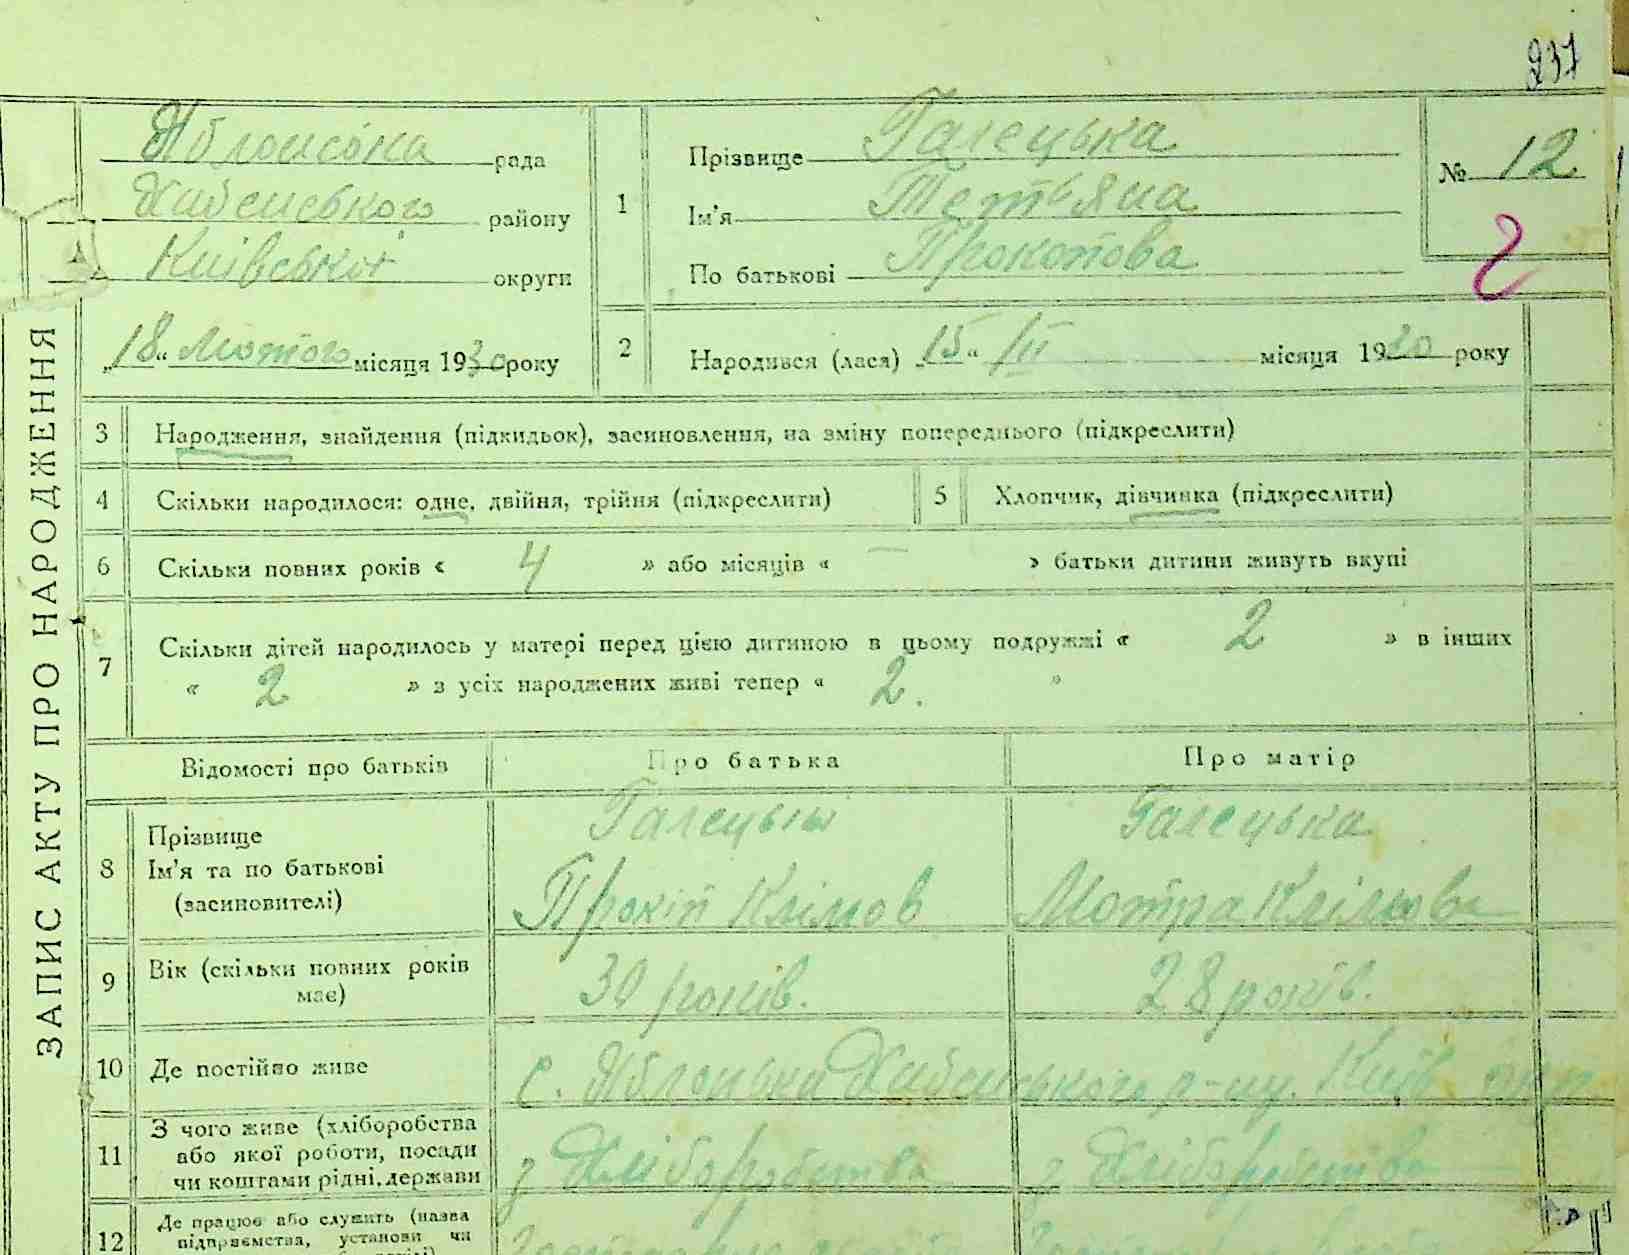 237
Яблонська рада
Хабенського району
Київської округи
„18“ Лютого місяця 1930 року
1
Прізвище Галецька
Ім'я Тетьяна
По батькові Прокопова
№ 12
2
Народився (лася) „15“ III місяця 1930 року
ЗАПИС АКТУ ПРО НАРОДЖЕННЯ
3 Народження, знайдення (підкидьок), засиновлення, на зміну попереднього (підкреслити)
4 Скільки народилося: одне, двійня, трійня (підкреслити) 5 Хлопчик, дівчинка (підкреслити)
6 Скільки повних років « 4 » або місяців « — » батьки дитини живуть вкупі
7 Скільки дітей народилось у матері перед цією дитиною в цьому подружжі « 2 » в інших
« 2 » з усіх народжених живі тепер « 2. »
Відомості про батьків Про батька Про матір
8 Прізвище
Ім'я та по батькові
(засиновителі)
Галецький
Прокіп Клімов
Галецька
Мотра Клімова
9 Вік (скільки повних років
має)
30 років. 28 років.
10 Де постійно живе с. Яблонька Хабенського р-ну. Київ
11 З чого живе (хліборобства
або якої роботи, посади
чи коштами рідні, держави
з Хліборобства з Хліборобства
12 Де працює або служить (назва
підприємства, установи чи